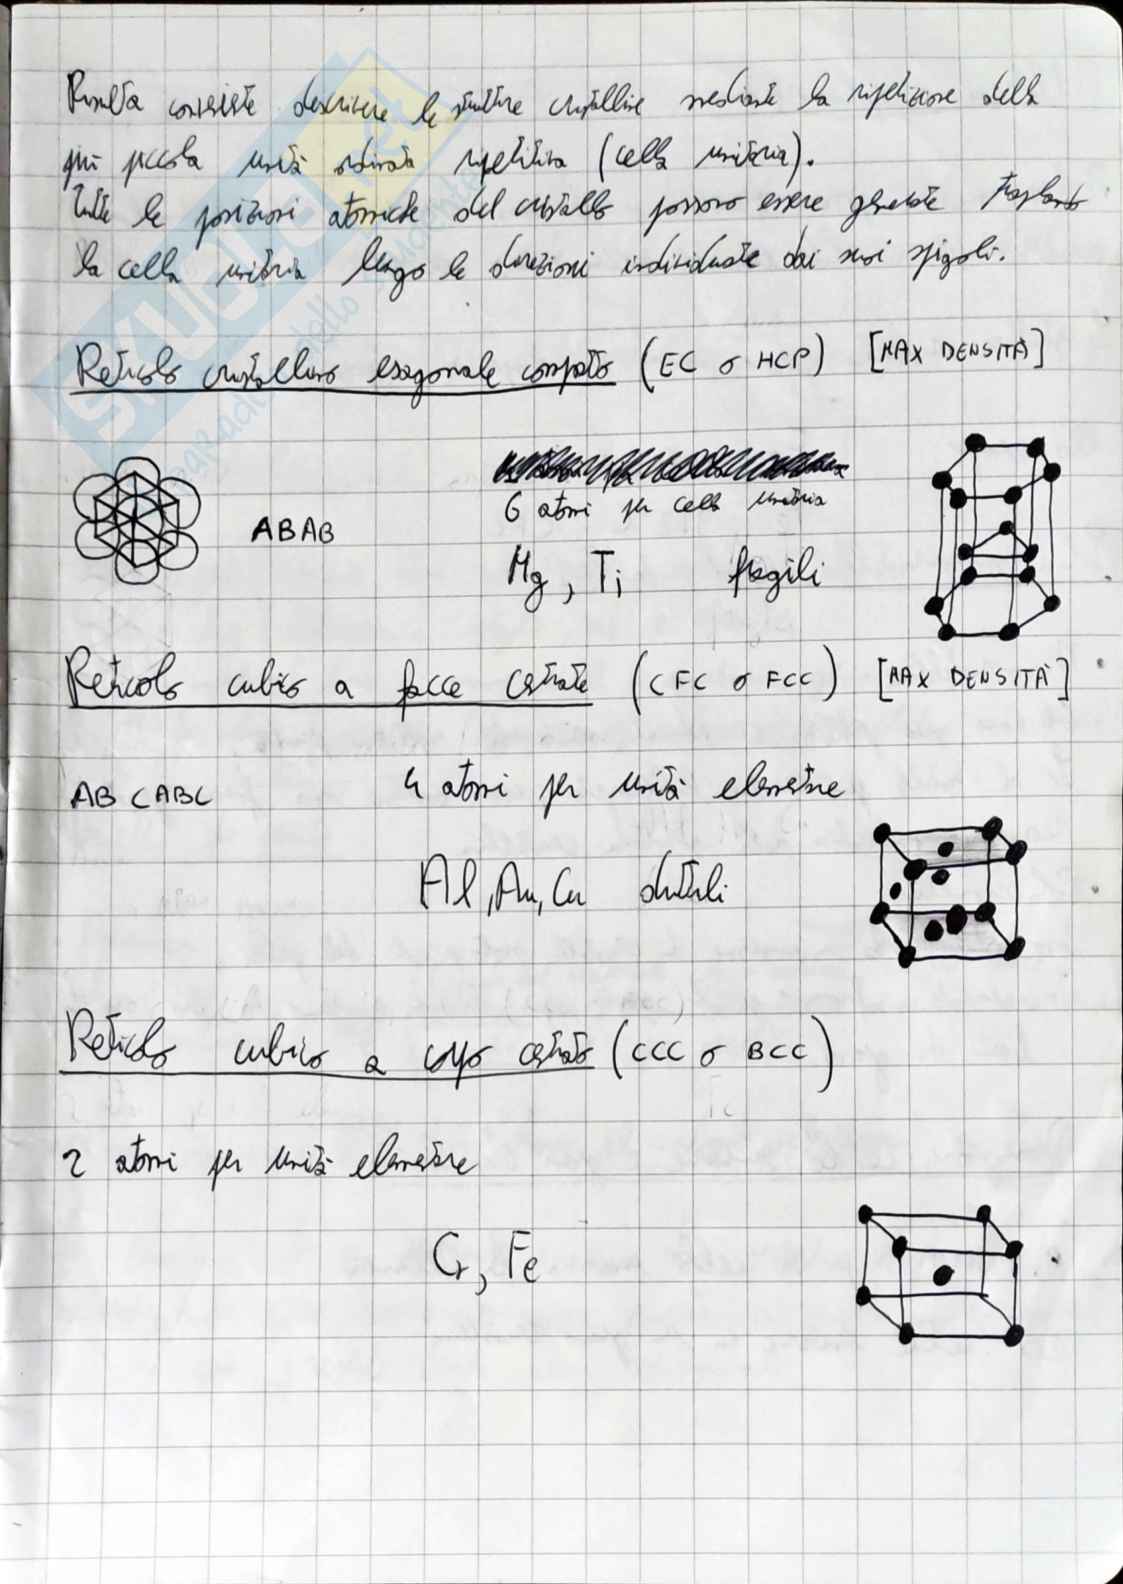 Risulta conveniente descrivere le strutture cristalline mediante la ripetizione della
più piccola unità ordinata ripetitiva (cella unitaria).
Tutte le posizioni atomiche del cristallo possono essere generate traslando
la cella unitaria lungo le direzioni individuate dai suoi spigoli.
Reticolo cristallino esagonale compatto (EC o HCP) [MAX DENSITÀ]
6 atomi per cella unitaria
ABAB
Mg, Ti fragili
Reticolo cubico a facce centrate (CFC o FCC) [MAX DENSITÀ]
ABCABC 4 atomi per unità elementare
Al, Au, Cu duttili
Reticolo cubico a corpo centrato (CCC o BCC)
2 atomi per unità elementare
Cr, Fe